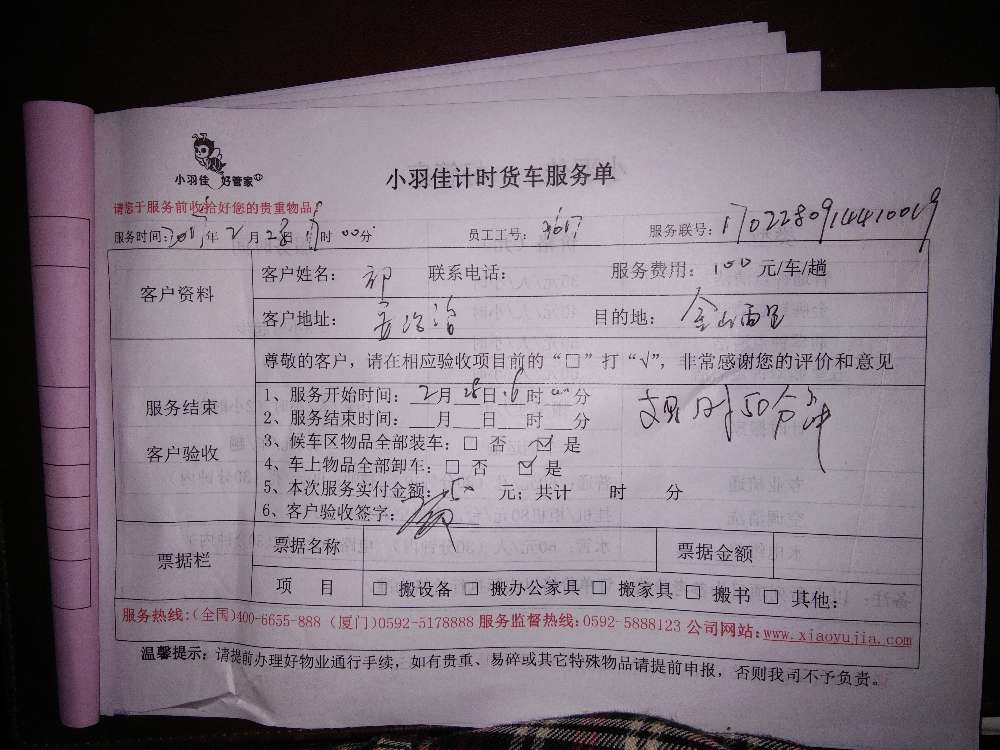 小羽佳 好管家
小羽佳计时货车服务单
请您于服务前收拾好您的贵重物品
服务时间:2017年2月28日 时00分 员工工号: 服务联号:1702280914410019
客户资料
客户姓名: 郭 联系电话: 服务费用:100元/车/趟
客户地址: 目的地: 金山西里
服务结束
客户验收
尊敬的客户，请在相应验收项目前的“□”打“√”，非常感谢您的评价和意见
1、服务开始时间: 2月28日16时00分
2、服务结束时间: 月 日 时 分
3、候车区物品全部装车: □ 否 ☑ 是
4、车上物品全部卸车: □ 否 ☑ 是
5、本次服务实付金额: 150 元; 共计 时 分
6、客户验收签字:
超时50分钟
票据栏
票据名称 票据金额
项 目 □ 搬设备 □ 搬办公家具 □ 搬家具 □ 搬书 □ 其他:
服务热线:(全国)400-6655-888 (厦门)0592-5178888 服务监督热线:0592-5888123 公司网站:www.xiaoyujia.com
温馨提示: 请提前办理好物业通行手续，如有贵重、易碎或其它特殊物品请提前申报，否则我司不予负责。